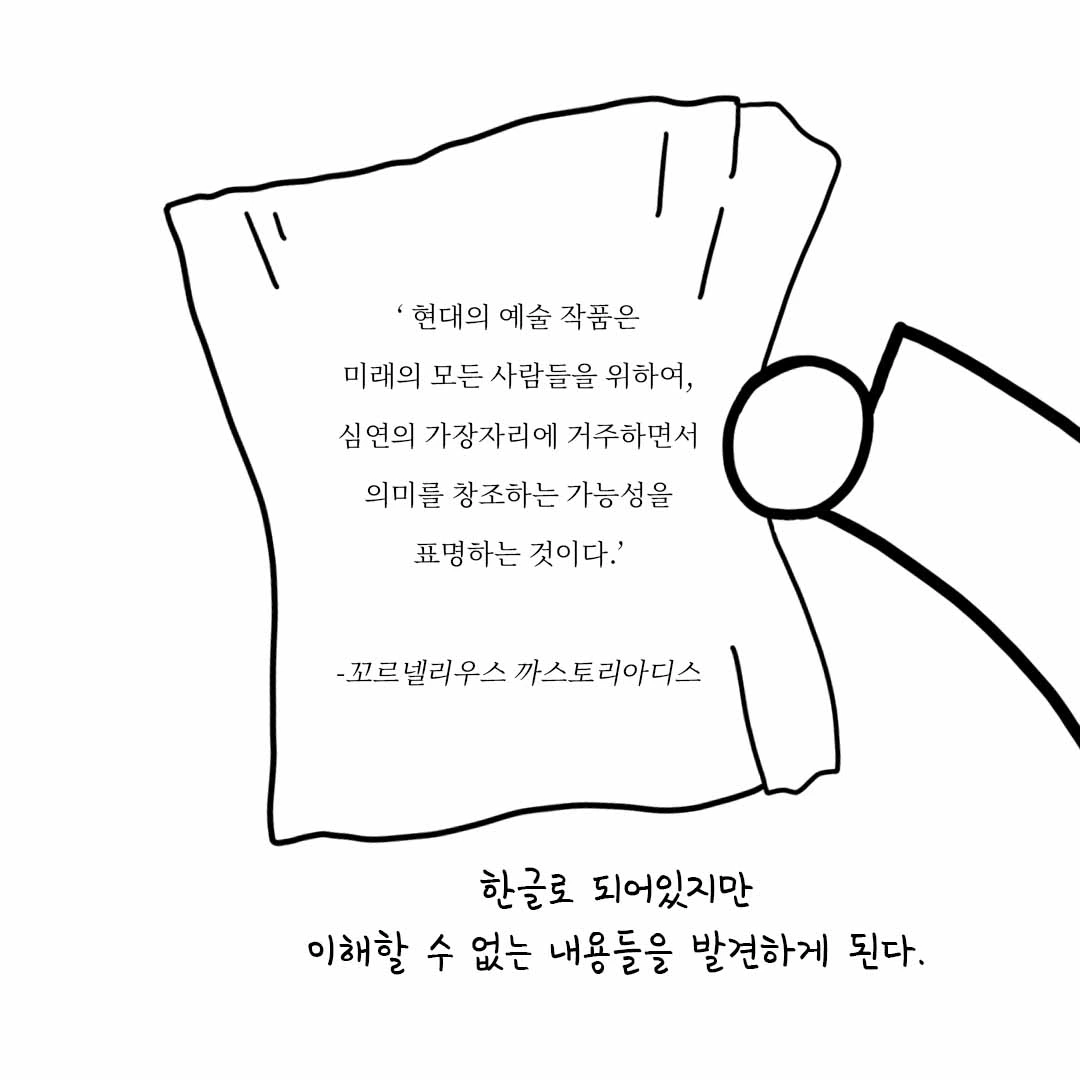 ‘ 현대의 예술 작품은
미래의 모든 사람들을 위하여,
심연의 가장자리에 거주하면서
의미를 창조하는 가능성을
표명하는 것이다.’
-꼬르넬리우스 까스토리아디스
한글로 되어있지만
이해할 수 없는 내용들을 발견하게 된다.